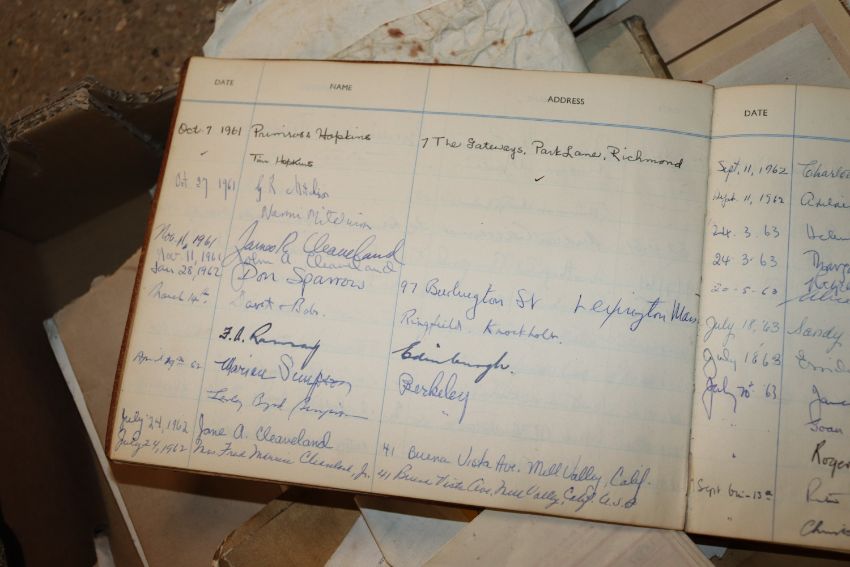 DATE NAME ADDRESS
Oct. 7 1961 Primrose Hopkins 7 The Gateways, Park Lane, Richmond
Tim Hopkins
Oct 27 1961
Naomi Mitchison
Nov. 11, 1961 James R. Cleaveland
Nov. 11, 1961 John A Cleaveland
Jan 28, 1962 Don Sparrow 97 Burlington St Lexington Mass
March 14th. & Bob. Ringfield. Knockholt.
F. A. Ramsay Edinburgh.
April 29th 62 Marian Simpson Berkeley
Lesley Byrd Simpson "
July 24, 1962 Jane A. Cleaveland 41 Buena Vista Ave. Mill Valley, Calif.
July 24, 1962 Mrs Fred Cleaveland, Jr. 41 Buena Vista Ave, Mill Valley, Calif. U.S.A
DATE
Sept. 11, 1962
Sept. 11, 1962
24. 3. 63 Helen
24 3. 63
20-5-63
July 18, '63 Sandy
July 18 63
July 20th '63 Jane
" Joan
Roger
Sept 6th-13th
"